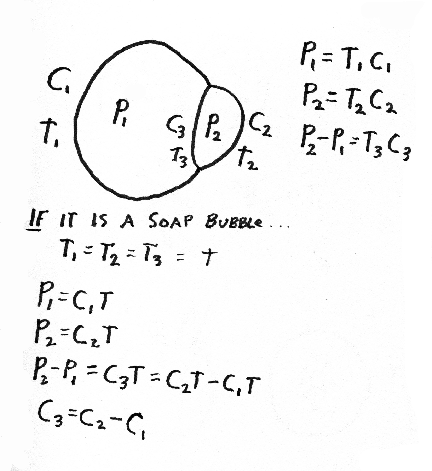 C₁
T₁
P₁
C₃
T₃
P₂
C₂
T₂
P₁ = T₁C₁
P₂ = T₂C₂
P₂-P₁ = T₃C₃
IF IT IS A SOAP BUBBLE...
T₁ = T₂ = T₃ = T
P₁ = C₁T
P₂ = C₂T
P₂-P₁ = C₃T = C₂T - C₁T
C₃ = C₂ - C₁